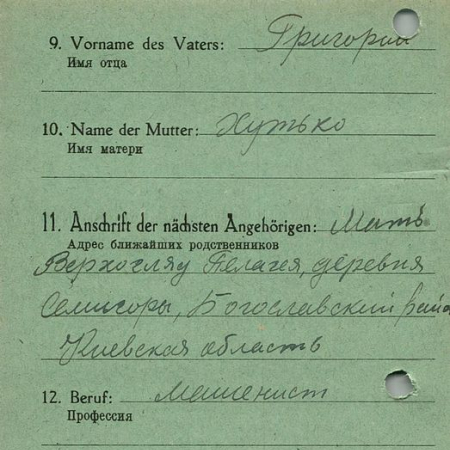 9. Vorname des Vaters: Григорий
Имя отца
10. Name der Mutter: Хутько
Имя матери
11. Anschrift der nächsten Angehörigen: Мать
Адрес ближайших родственников
Верхогляу Пелагея, деревня
Семигоры, Богославский райо
Киевская область
12. Beruf: машенист
Профессия